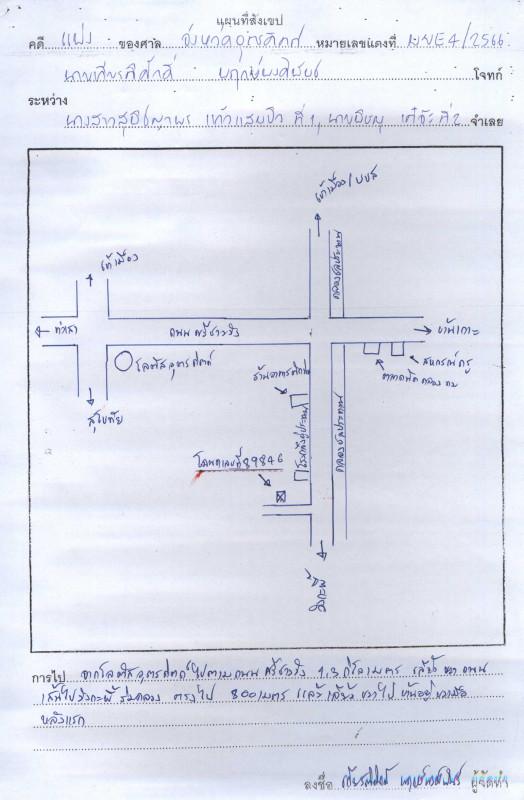 แผนที่สังเขป
คดี แพ่ง ของศาล จังหวัดอุตรดิตถ์ หมายเลขแดงที่ ผบE4/2566
นายเกียรติศักดิ์ โจทก์
ระหว่าง
นางสาว ที่ 1, นาย ที่ 2 จำเลย
เข้าเมือง/บขส
คลองชลประทาน
เข้าเมือง
ท่าเสา
ถนน ศรีชาววัง
บ้านเกาะ
โลตัสอุตรดิตถ์
สหกรณ์ครู
ตลาดนัดคลองถม
สุโขทัย
คลองชลประทาน
โฉนดเลขที่ 89846
วังกะพี้
การไป จากโลตัสอุตรดิตถ์ไปตามถนน ศรีชาววัง 1.3 กิโลเมตร เลี้ยวขวา ถนน
เส้นไปวังกะพี้ ริมคลอง ตรงไป 800 เมตร แล้วเลี้ยวขวาไป บ้านอยู่ขวามือ
หลังแรก
ลงชื่อ ผู้จัดทำ